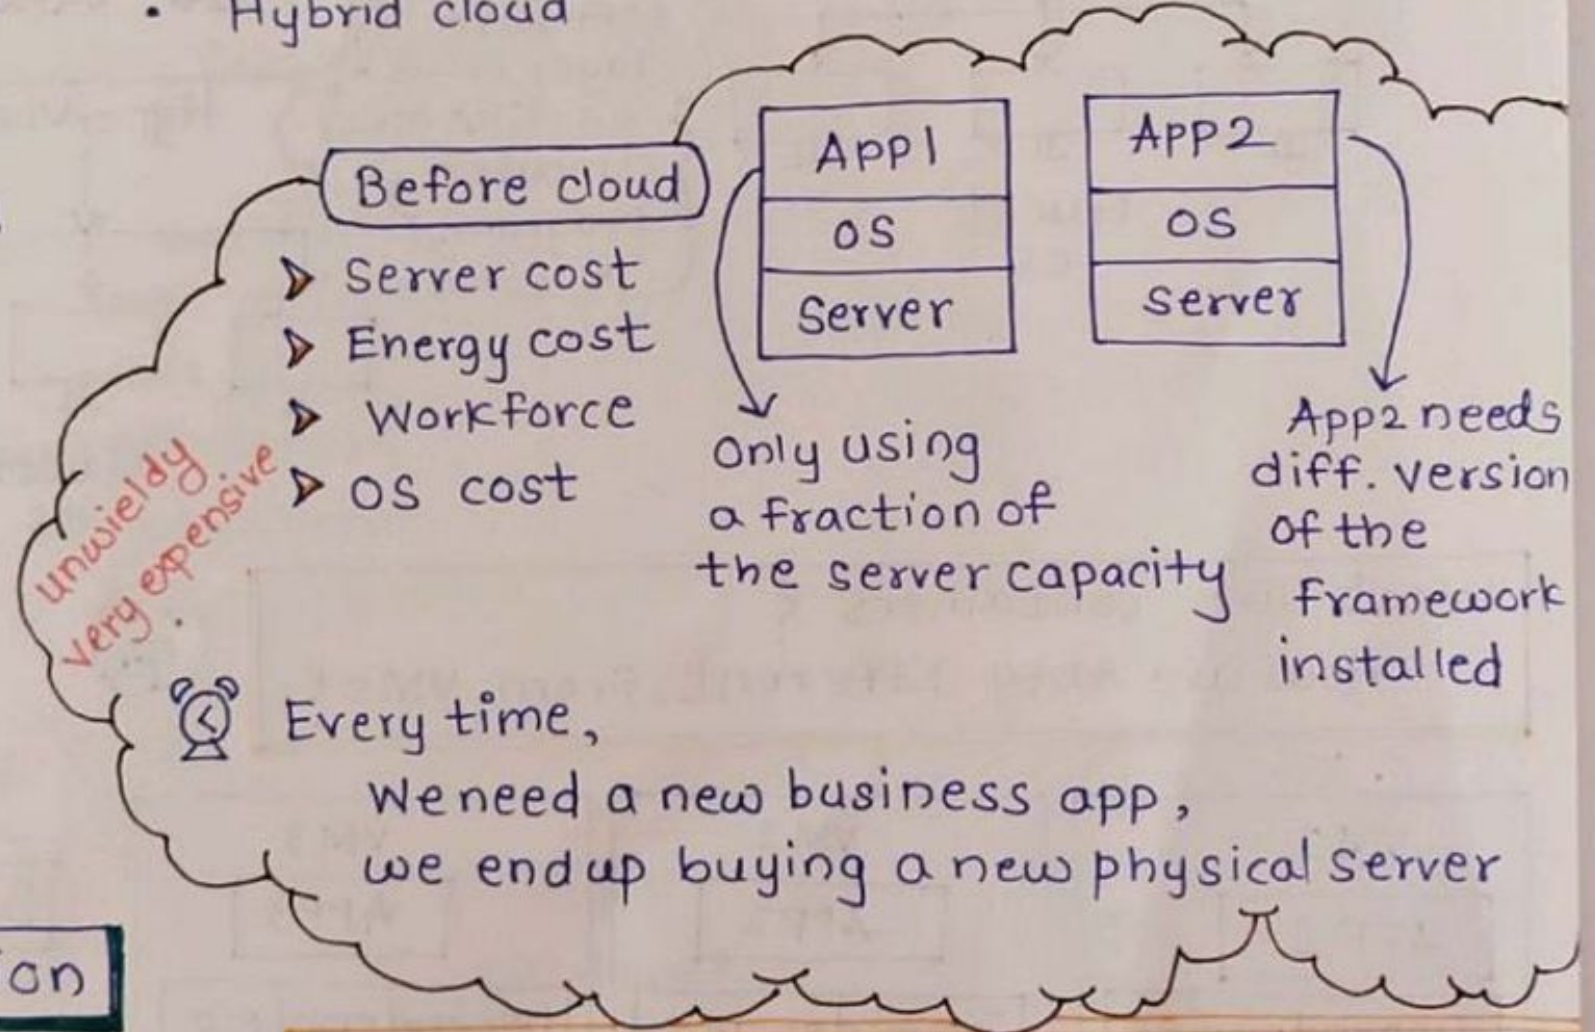 • Hybrid cloud
Before cloud
➤ Server cost
➤ Energy cost
➤ Workforce
➤ OS cost
unwieldy
very expensive
App1
OS
Server
App2
OS
Server
Only using
a fraction of
the server capacity
App2 needs
diff. version
of the
framework
installed
Every time,
We need a new business app,
we end up buying a new physical server
on